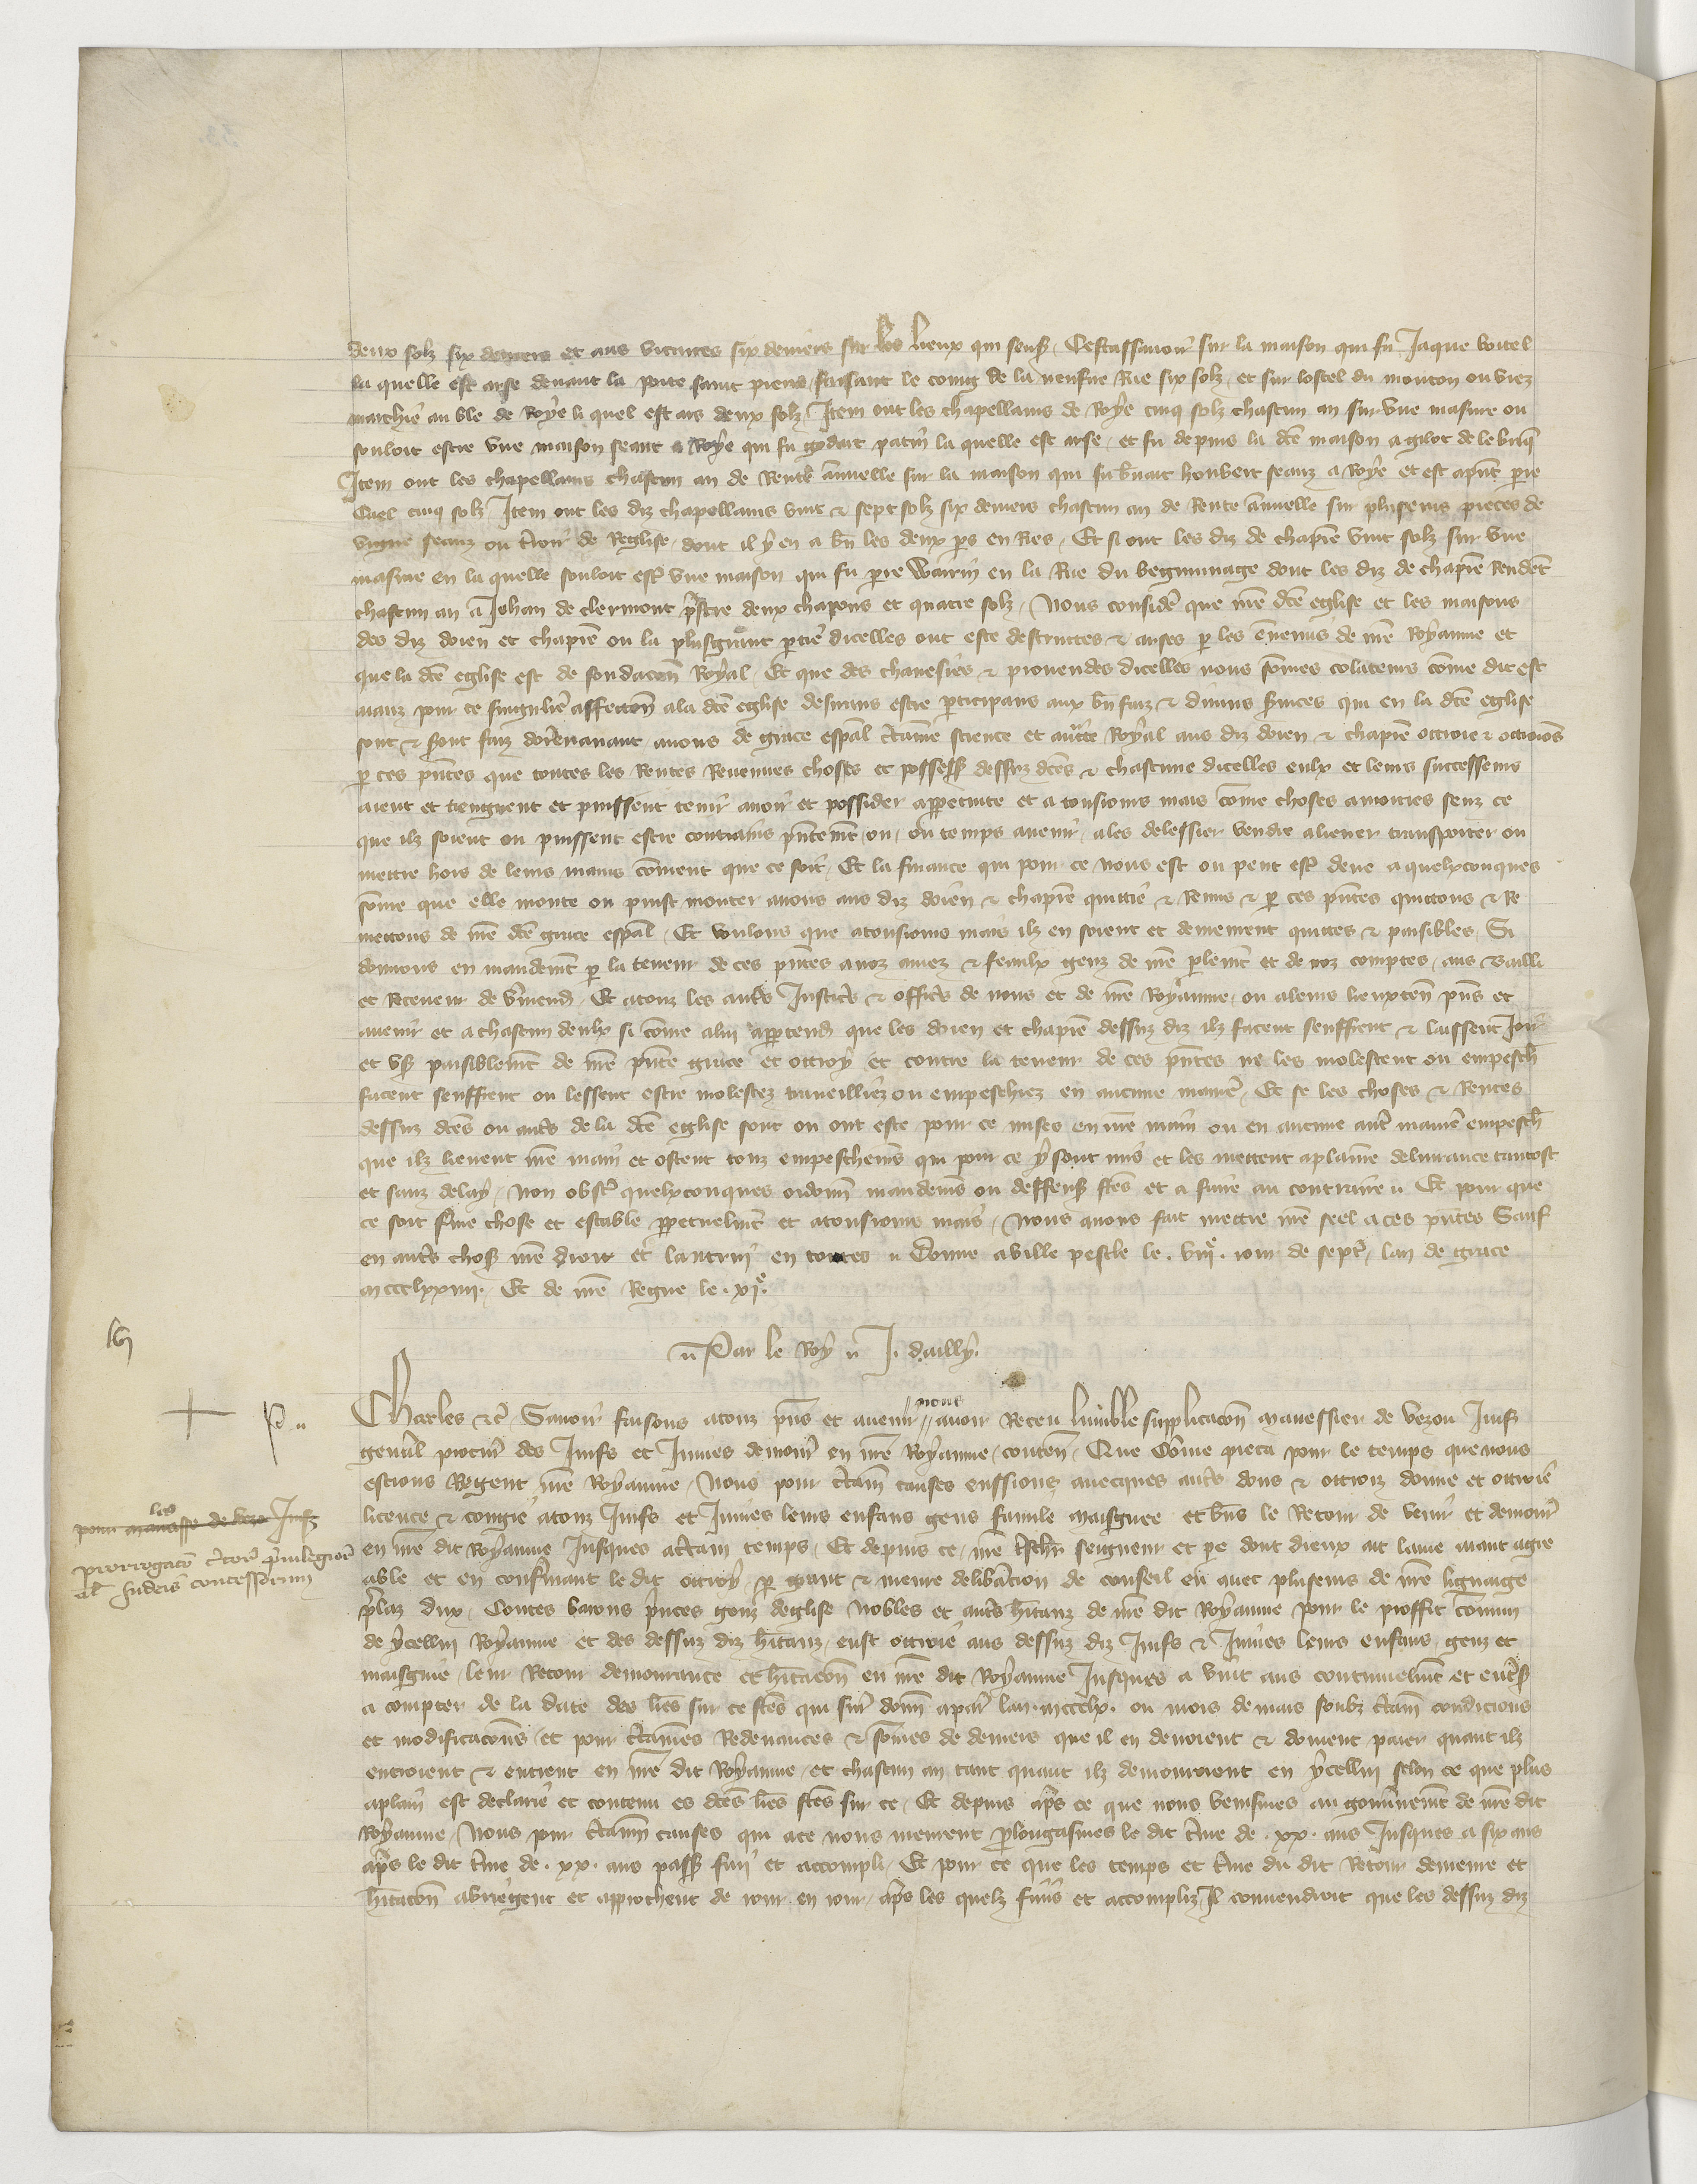 deux solz six deniers et aus vicaires six deniers sur les lieux qui sens. Cestassavoir sur la maison qui fu Jaque Voitel
la quelle est arse devant la porte saint pierre faisant le coing de la neufue Rue six solz, et sur lostel du mouton ou viez
marchie au ble de Roye li quel est ars deux solz, Item ont les chapellains de Roye cinq solz chascun an sur une masure ou
souloit estre une maison seant a Roye qui fu godart patin la quelle est arse, et fu depuis la dce maison a gilot de le
Item ont les chapellains chascun an de Rente annuelle sur la maison qui fu seanz a Roye et est apnt pre
cinq solz Item ont les diz chapellains vint & sept solz six deniers chascun an de Rente annuelle sur pluseurs pieces de
vigne seanz ou de leglise, dont il y en a bn les deux pars en Res, Et si ont les diz de chapitre vint solz sur une
masure en la quelle souloit est une maison qui fu pre Warin en la Rue du beguinnage dont les diz de chapitre Rendent
chascun an a Johan de clermont prestre deux chapons et quatre solz, Nous consider que nre dce eglise et les maisons
des diz doien et chapitre ou la plusgrant partie dicelles ont este destruites & arses par les ennemis de nre Royaume et
que la dce eglise est de fondacon Royal, Et que des chanesies & provendes dicelles nous sommes colateurs come dit est
aianz pour ce singuliere affeccon a la dce eglise desirans estre participans aux bn faiz & divins services qui en la dce eglise
sont & seront faiz dorenavant avons de grace espal certaine science et aucte Royal aus diz doien & chapitre ottroie & ottroions
par ces pntes que toutes les Rentes Revenues choses et possess dessuz dces & chascune dicelles eulx et leurs successeurs
aient et tiengnent et puissent tenir avoir et possider a perpetuite et a tousiours mais come choses amorties senz ce
que ilz soient ou puissent estre contrains pntemt ou, ou temps avenir, a les delessier vendre aliener transporter ou
mettre hors de leurs mains coment que ce soit, Et la finance qui pour ce nous est ou peut est deue a quelxconques
some que elle monte ou puist monter avons aus diz doien & chapitre quittie & Remis & par ces pntes quittons & Re
mettons de nre dce grace espal, Et voulons que a tousiours mais ilz en soient et demeurent quittes & paisibles, Si
donnons en mandemt par la teneur de ces pntes a noz amez & feaulx genz de nre parlemt et de noz comptes, aus Bailli
et Receveur de Vermend, Et a touz les autres Justiciers & officiers de nous et de nre Royaume, ou a leurs lieuxten pns et
avenir et a chascun deulx si come a lui appartend que les doien et chapitre dessuz diz ilz facent seuffrent & laissent Joir
et user paisiblemt de nre pnte grace et ottroy et contre la teneur de ces pntes ne les molestent ou empesch
facent seuffrent ou lessent estre molestez traveilliez ou empeschiez en aucune maniere, Et se les choses & Rentes
dessuz dces ou autres de la dce eglise sont ou ont este pour ce mises en nre main ou en aucune autre maniere empesch
que ilz lievent nre main et ostent touz empeschemens qui pour ce y sont mis et les mettent a plaine delivrance tantost
et sanz delay, Non obst quelxconques ordonn mandemens ou deffens ftes et a faire au contraire Et pour que
ce soit ferme chose et estable perpetuelmt et a tousiours mais, Nous avons fait mettre nre seel a ces pntes Sauf
en autres choses nre droit et lautrui en toutes Donne a ville pescle le .viije. jour de sept, lan de grace
mccclxxiiij. Et de nre Regne le .xje.
Par le Roy J. dailly.
Charles &c Savoir faisons a touz pns et avenir nous avoir Receu lumble supplicacon manessier de vezou Juif
general procur des Juifs et Juives demour en nre Royaume, conten, Que Come pieca pour le temps que nous
estions Regent nre Royaume, Nous pour certain causes eussions avecques autres dons & ottroiz donne et ottroie
licence & congie a touz Juifs et Juives leurs enfans gens famile maisgnee et biens le Retour de venir et demour
en nre dit Royaume Jusques a certain temps, Et depuis ce, nre tschr seigneur et pere dont dieux ait lame aiant agre
able et en confermant le dit ottroy par grant & meure deliberacion de conseil eu avec pluseurs de nre lignaige
prelaz dux, Contes barons princes genz deglise Nobles et autres hitanz de nre dit Royaume pour le proffit comun
de ycellui Royaume et des dessuz diz hitanz, eust ottroie aus dessuz diz Juifs & Juives leurs enfans, genz et
maisgnie, leur Retour demourance et hitacon en nre dit Royaume Jusques a vint ans continuelmt et
a compter de la date des lres sur ce ftes qui fur donn a paris lan mccclx. ou mois de mars soubz certain condicions
et modificacons et pour certaines Redevances & somes de deniers que il en devoient & doivent paier quant ilz
entroient & entrent en nre dit Royaume et chascun an tant quant ilz demourroient en ycellui selon ce que plus
a plain est declarie et contenu es dces lres ftes sur ce, Et depuis apres ce que nous venismes au gouvernemt de nre dit
Royaume, Nous pour certain causes qui a ce nous meuvent prolongasmes le dit terme de .xx. ans Jusques a six ans
apres le dit terme de .xx. ans passe fini et accompli, Et pour ce que les temps et terme du dit Retour demeure et
hitacon abriegent et approchent de jour en jour, apres les quelz finis et accompliz, Il convendroit que les dessuz diz
les
pour manasse de vezo Juifz
prorrogaco certor privilegior
Judeis concessorum